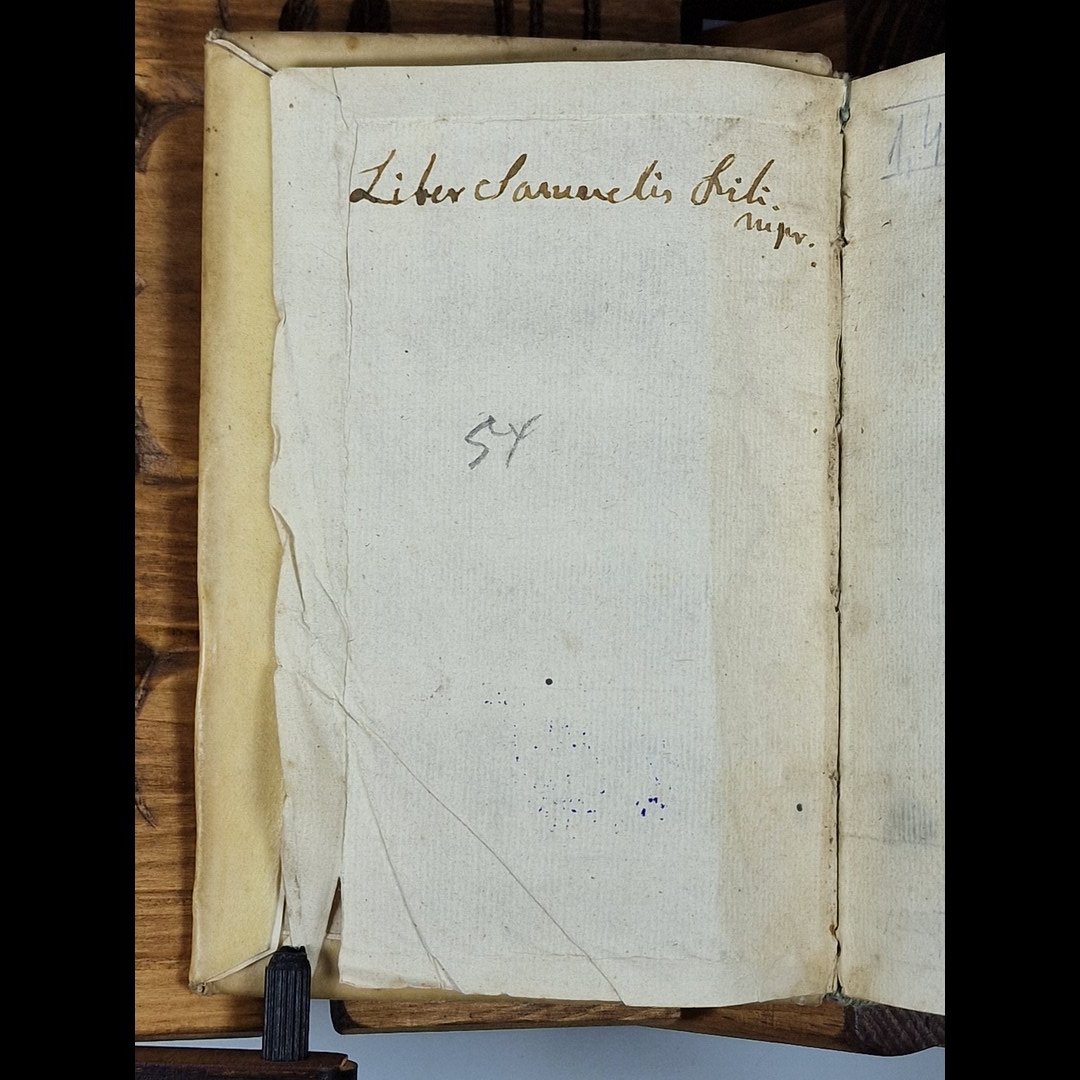 Liber Samuelis Kili.
mpr.
54
1.4